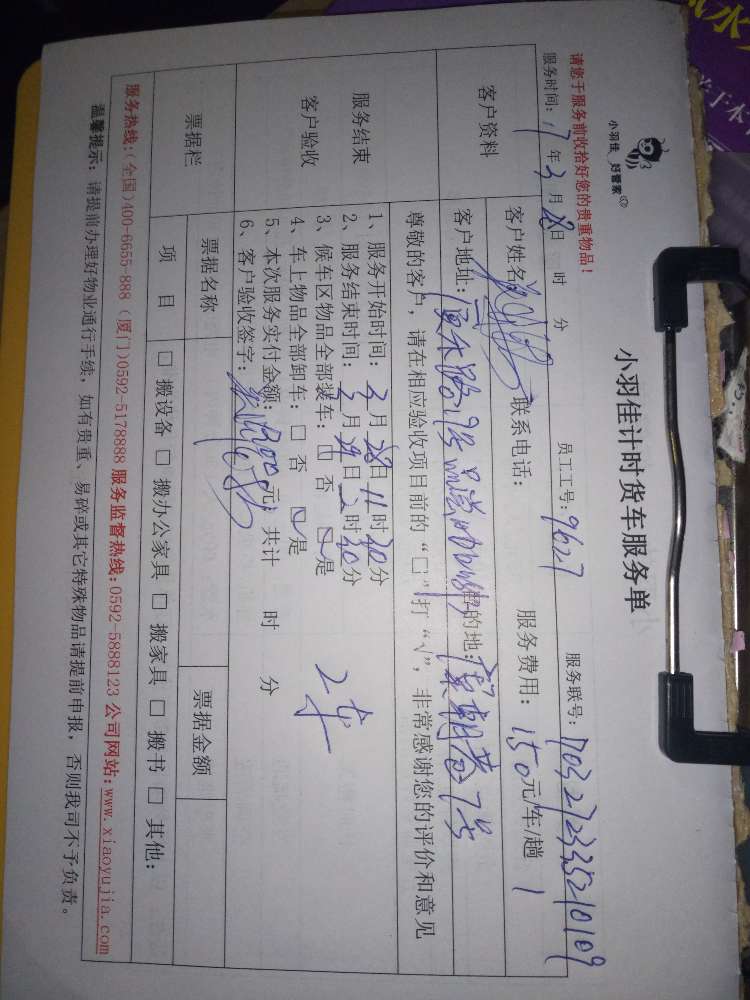 小羽佳 好管家
小羽佳计时货车服务单
请您于服务前收拾好您的贵重物品！
服务时间：17年3月28日 时 分 员工工号：9627 服务联号：1703272335210109
客户资料
客户姓名 联系电话： 服务费用：150元/车/趟 1
客户地址： 目的地：
尊敬的客户，请在相应验收项目前的“□”打“√”，非常感谢您的评价和意见
服务结束
客户验收
1、服务开始时间：3月28日11时30分
2、服务结束时间：3月29日2时30分
3、候车区物品全部装车：□ 否 ☑是
4、车上物品全部卸车：□ 否 ☑是
5、本次服务实付金额：300元；共计 时 分
6、客户验收签字：
2车
票据栏
票据名称 票据金额
项 目 □ 搬设备 □ 搬办公家具 □ 搬家具 □ 搬书 □ 其他：
服务热线：(全国)400-6655-888 (厦门)0592-5178888 服务监督热线：0592-5888123 公司网站：www.xiaoyujia.com
温馨提示：请提前办理好物业通行手续，如有贵重、易碎或其它特殊物品请提前申报，否则我司不予负责。